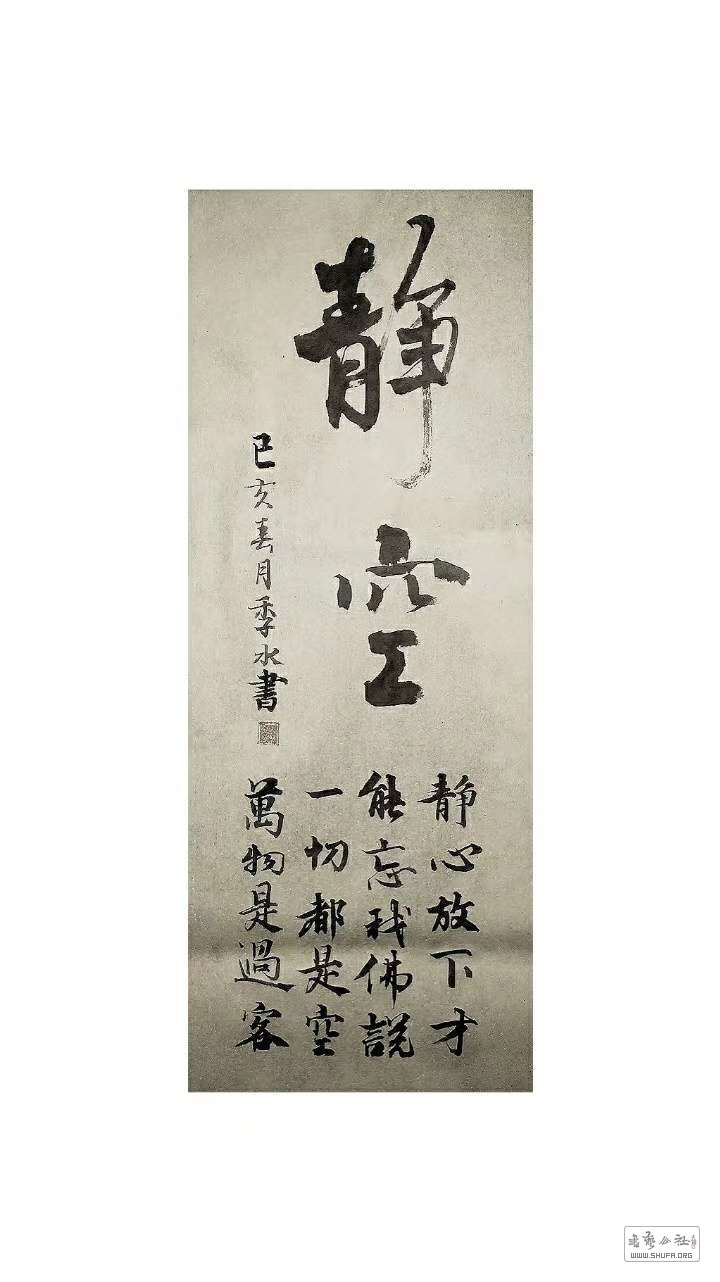 静空
静心放下才
能忘我佛説
一切都是空
萬物是過客
己亥春月季水書
WWW.SHUFA.ORG